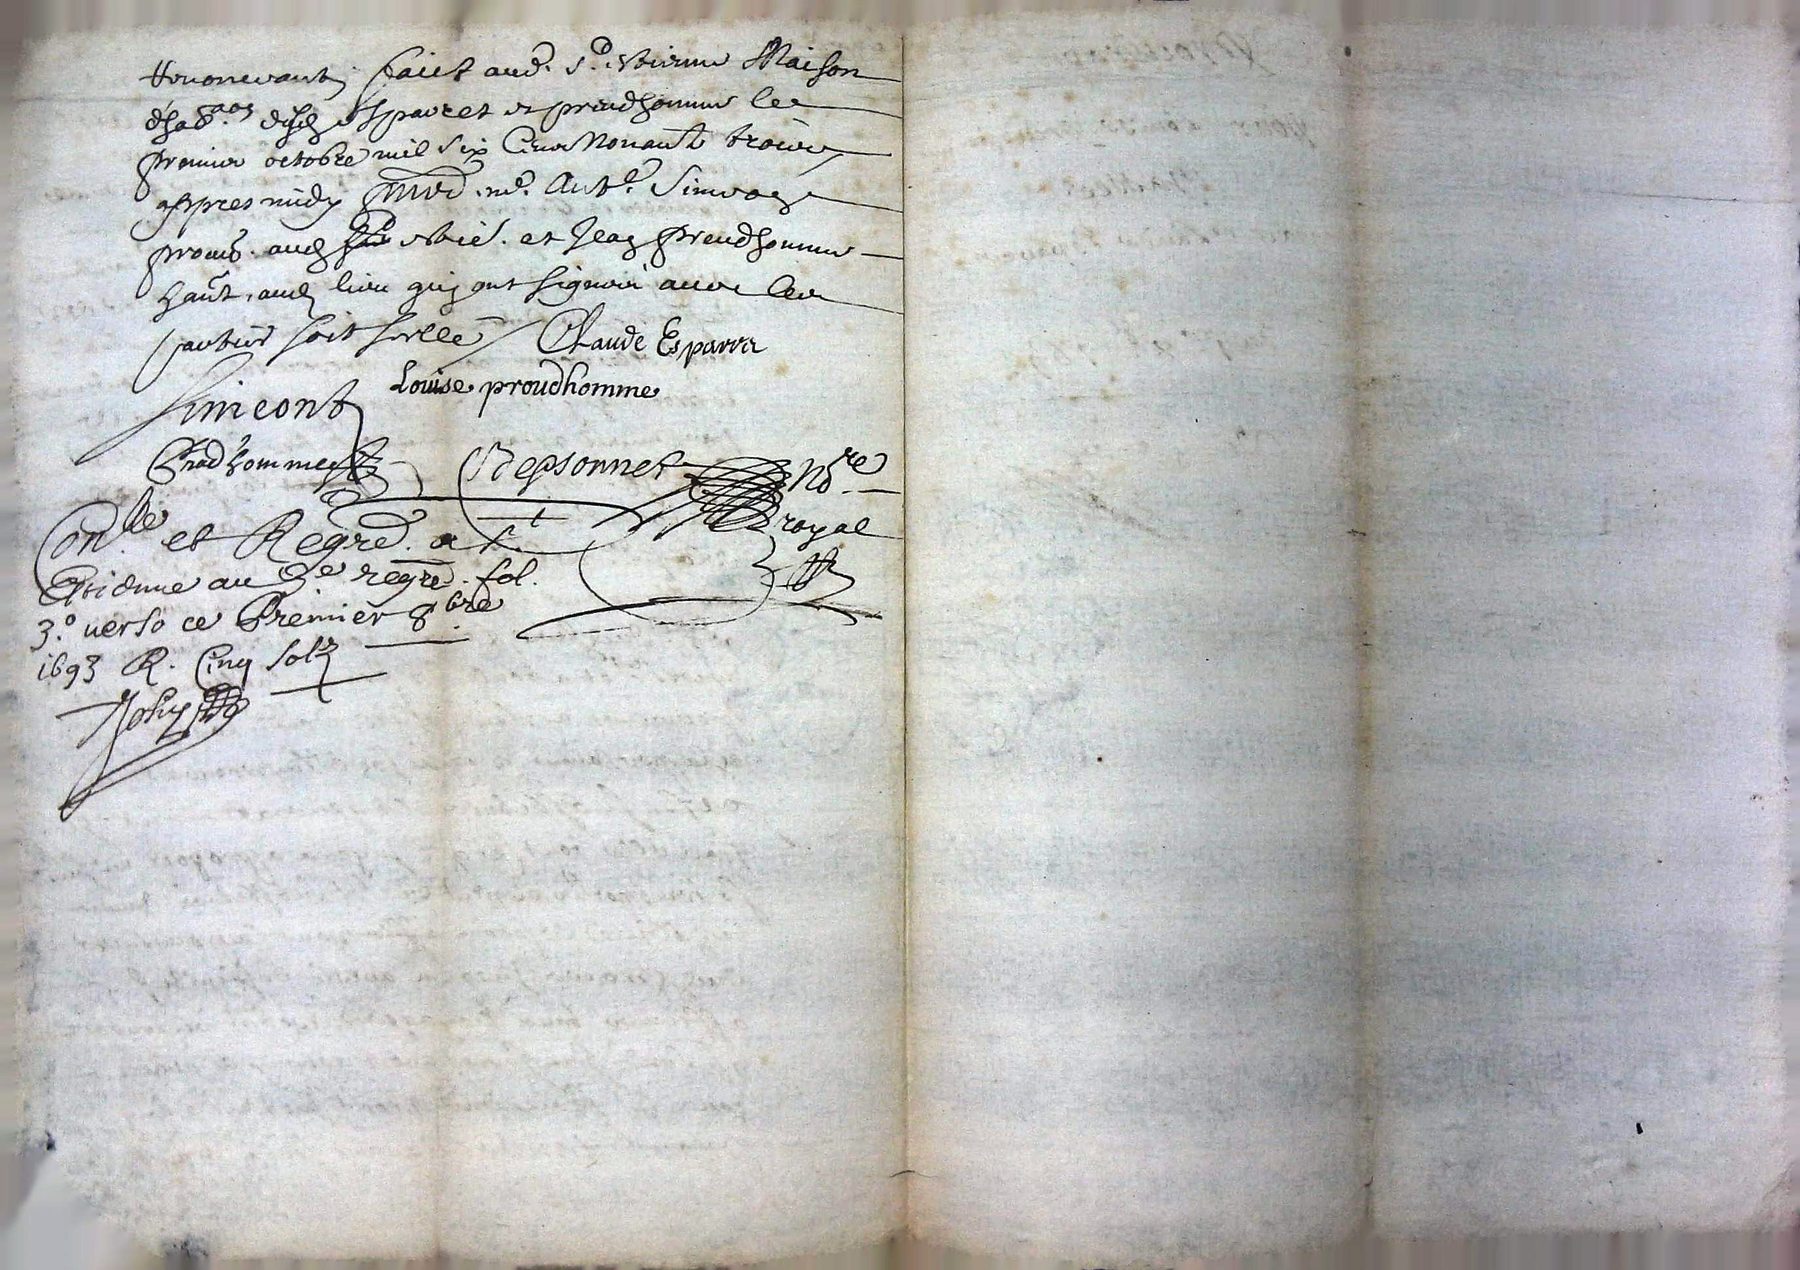 faict aud. St. Estienne Maison
d'hab.aon desd. Esparret et preudhomme le
premier octobre mil six Cens Nonante trois
appres midy pnts. me. Ant.e Simeon
procur. aud. St. Estie. et Jean Preudhomme
habt. aud. lieu quy ont signéz avec les
parties soit scellé Claude Esparra
Louise proudhomme
Simeont
Prudhomme Depsonnel No.re
royal
Con.lle et Regré. a S.
Estienne au 3e regre. fol.
3.o verso ce Premier 8.bre
1693 R. Cinq solz